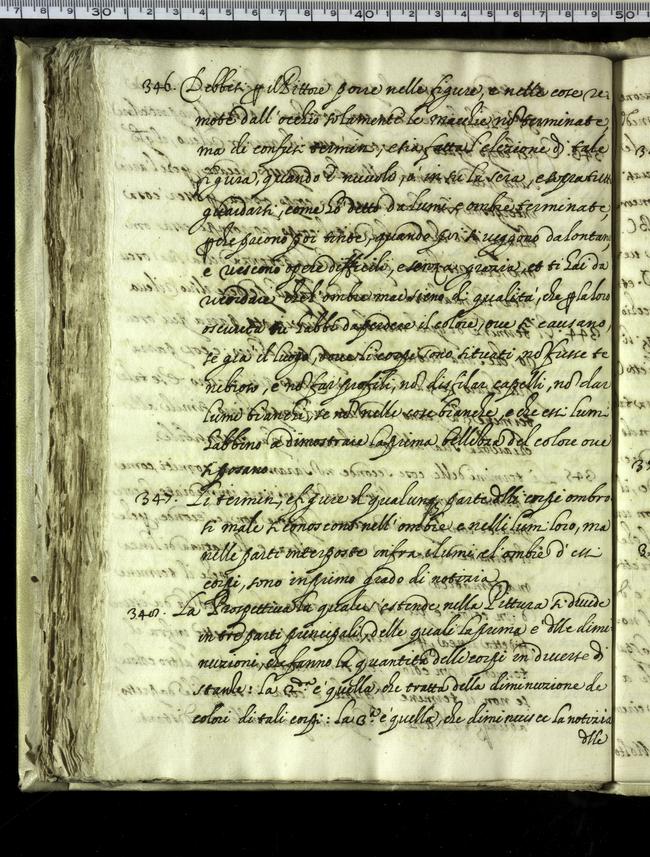 346. Debbesi il Pittore porre nelle figure, e nelle cose re-
mote dall'occhio solamente le macchie, nõ terminate
ma di confusi termini, e sia fatta l'elezione di tale
figura, quando è nuvolo, o in su la sera, e sopra tutto
guardarsi, come hò detto da lumi, e ombre terminate,
poi tinte, quando poi si veggono da lontano
e riescono opere difficili, e senza grazia, et ti hai da
ricordare che l'ombre mai sieno di qualità, che la loro
oscurità habbi da perdere il colore, ove si causano,
se già il luogo, dove li corpi sono situati nõ fusse te-
nebroso, e nõ far profili, nõ disfilar capelli, nõ dar
lumi bianchi, se nõ nelle cose bianche, e che essi lumi
habbino a dimostrare la prima bellezza del colore ove
si posano.
347. Li termini, e figure di qualunq parte delli corpi ombro-
si male si conoscono nell'ombre e nelli lumi loro, ma
nelle parti interposte infra i lumi, e l'ombre d'essi
corpi, sono in primo grado di notizia.
348. La Prospettiva la quale s'estende nella Pittura si divide
in tre parti principali, delle quali la prima è delle dimi-
nuzioni, che fanno la quantità delli corpi in diverse di-
stanze: la 2.da è quella, che tratta della diminuzione de
colori di tali corpi: la 3.a è quella, che diminuisce la notizia
delle